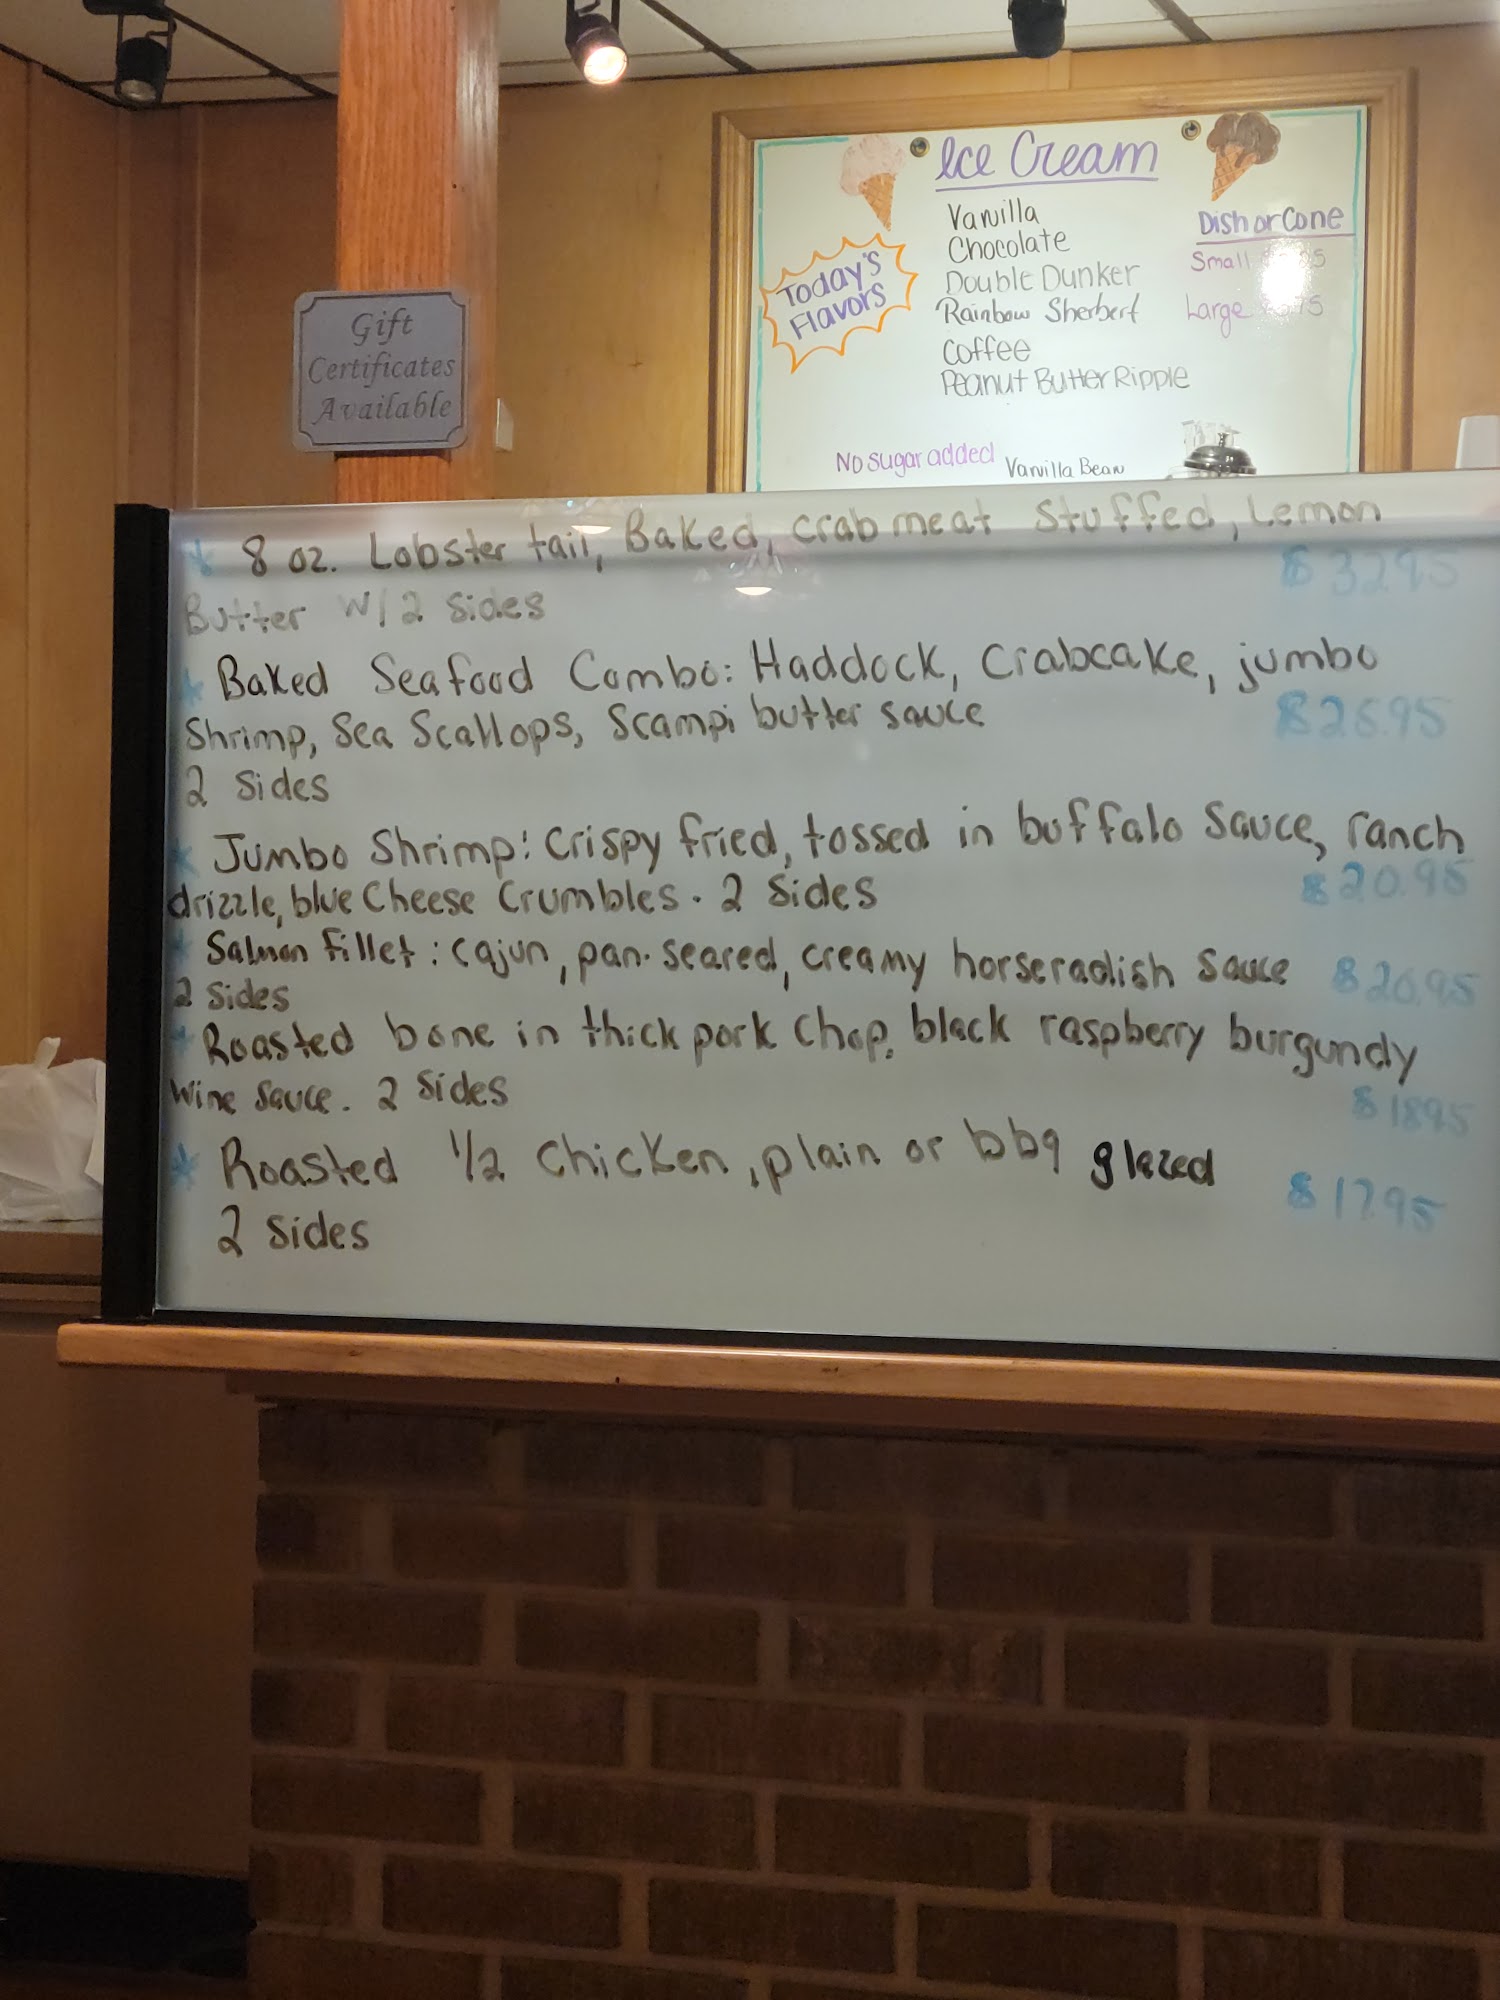 Ice Cream
Today's
Flavors
Vanilla
Chocolate
Double Dunker
Rainbow Sherbert
Coffee
Peanut Butter Ripple
No sugar added Vanilla Bean
Dish or Cone
Small
Large
Gift
Certificates
Available
* 8 oz. Lobster tail, Baked, crab meat stuffed, Lemon
Butter W/ 2 sides $32.95
* Baked Seafood Combo: Haddock, Crabcake, jumbo
Shrimp, Sea Scallops, Scampi butter sauce
2 Sides
* Jumbo Shrimp: Crispy fried, tossed in buffalo Sauce, ranch
drizzle, blue Cheese Crumbles. 2 Sides $20.95
* Salmon Fillet: cajun, pan-seared, creamy horseradish Sauce $20.95
2 Sides
* Roasted bone in thick pork Chop, black raspberry burgundy
Wine Sauce. 2 Sides $18.95
* Roasted 1/2 Chicken, plain or bbq glazed $17.95
2 Sides